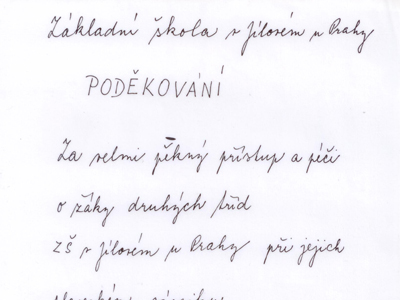 Základní škola v Jílovém u Prahy
PODĚKOVÁNÍ
Za velmi pěkný přístup a péči
o žáky druhých tříd
ZŠ v Jílovém u Prahy při jejich